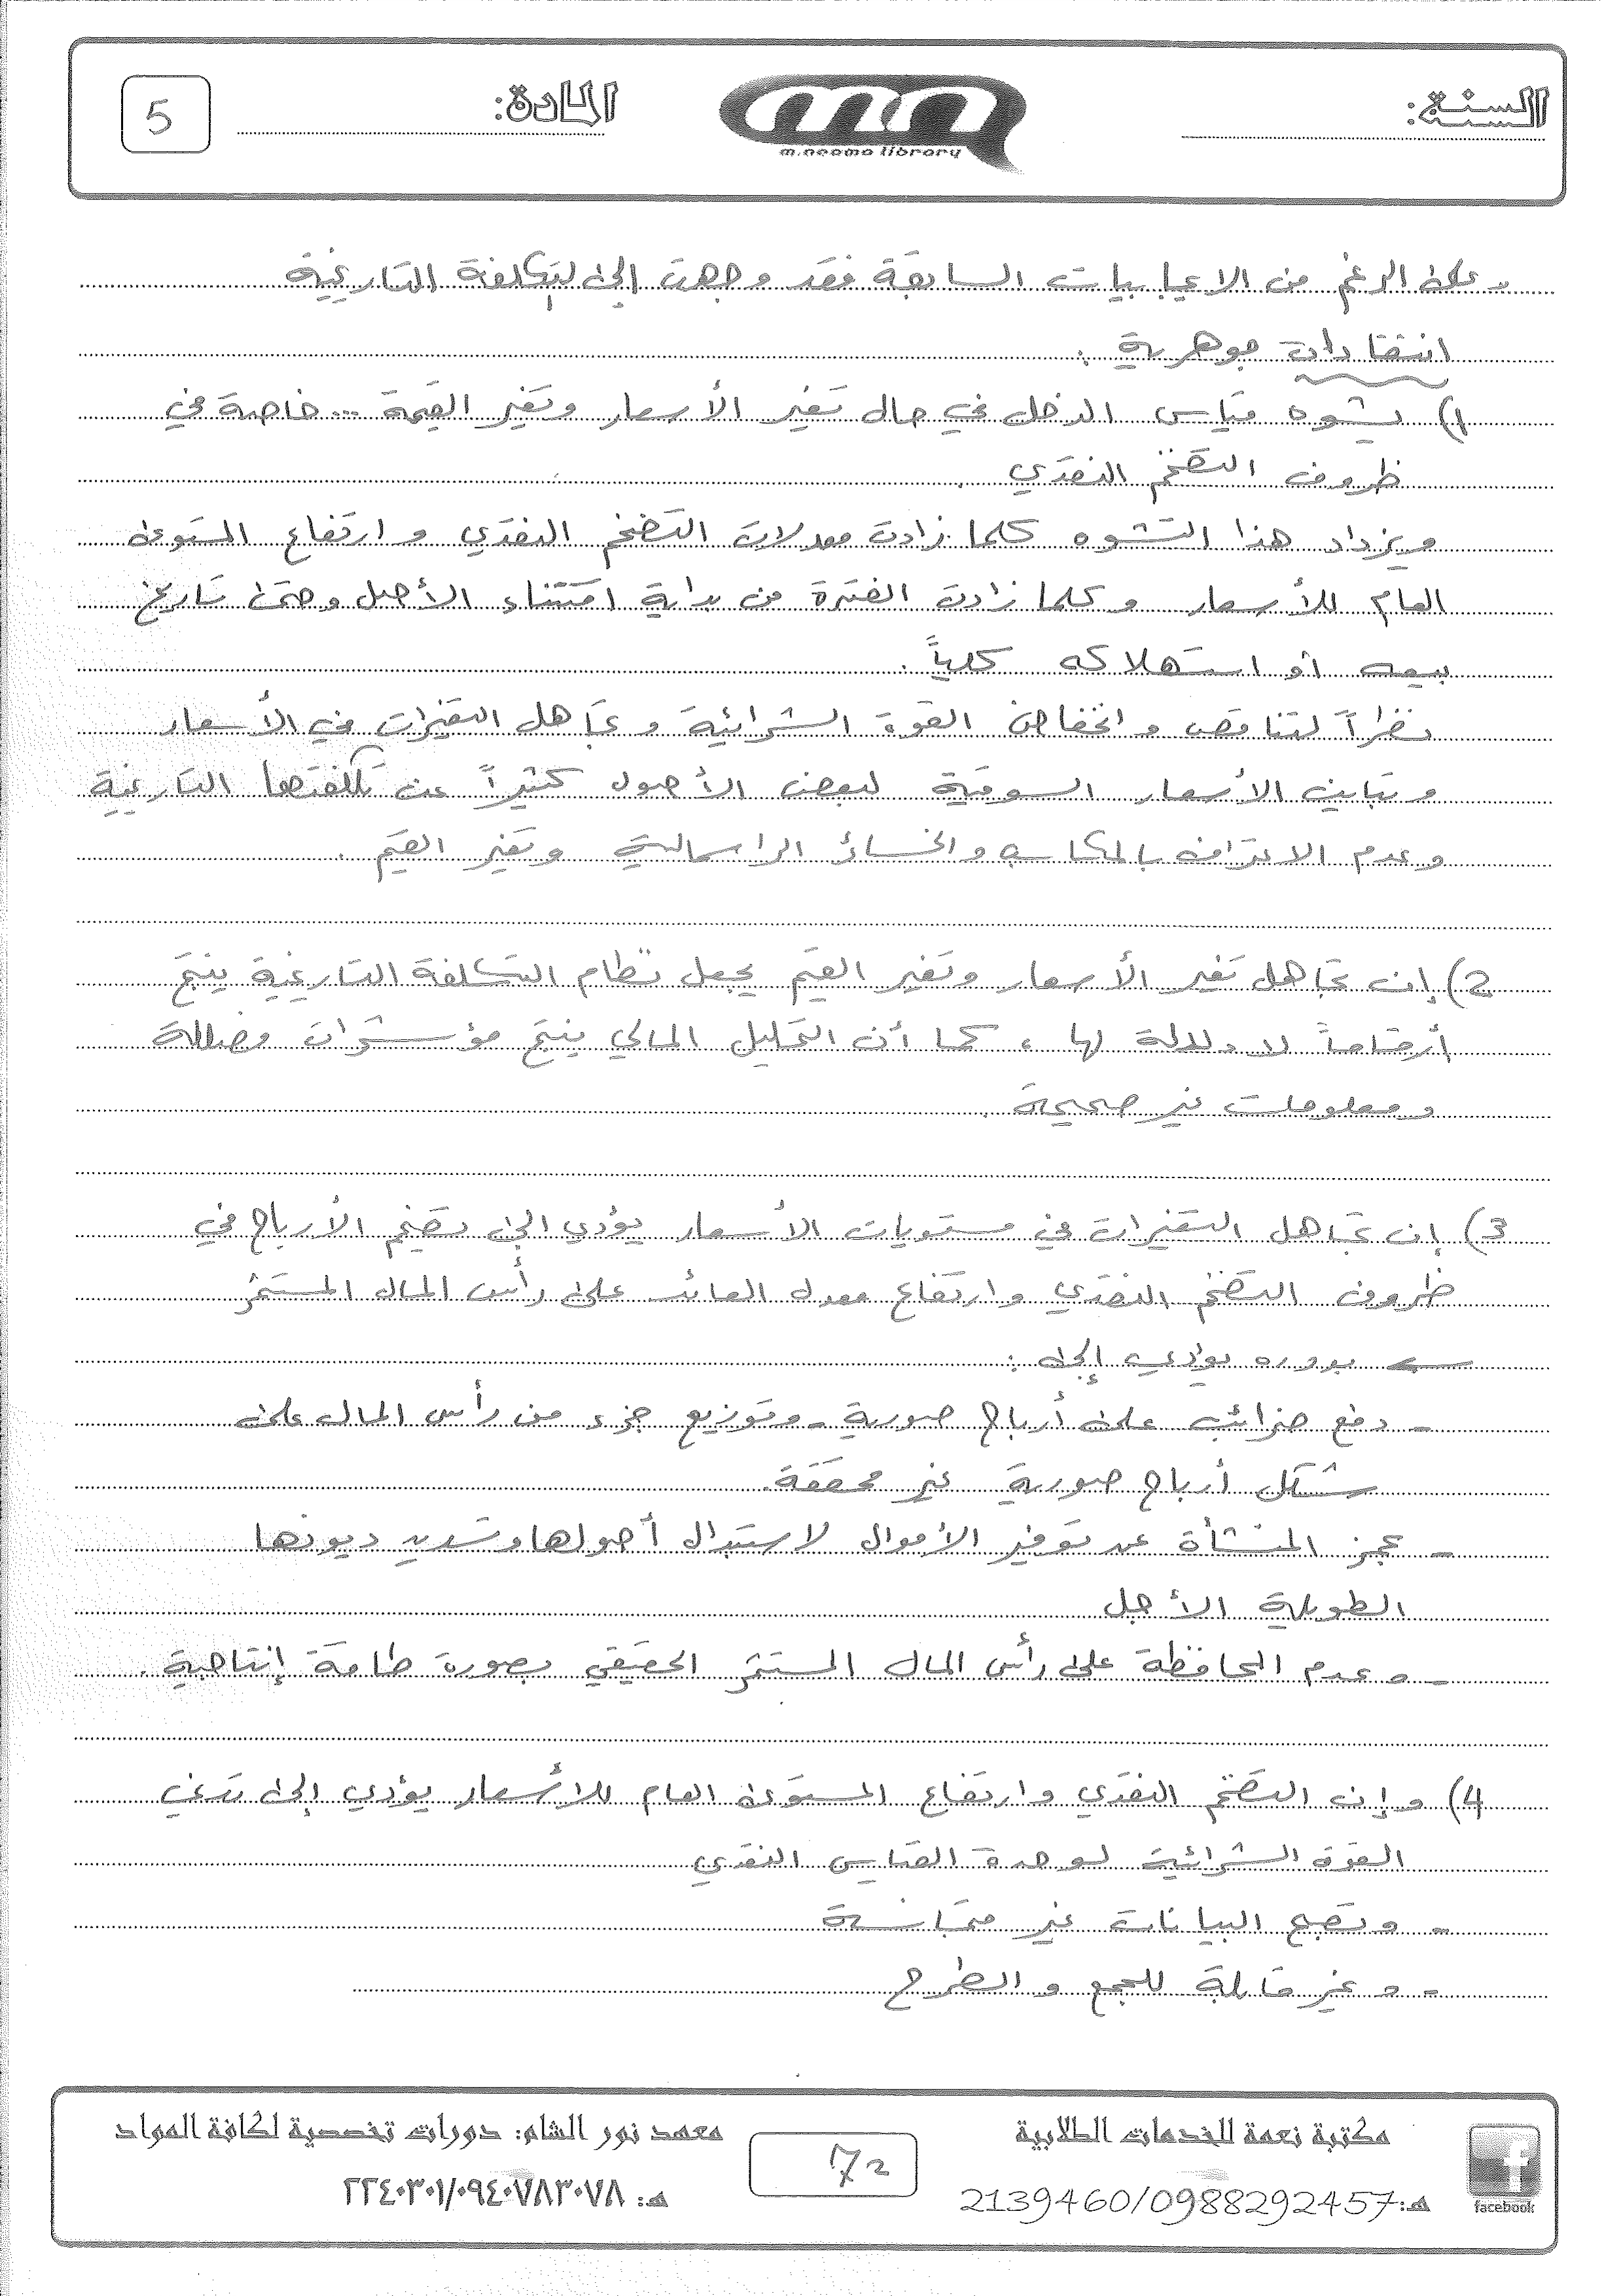 السنة:
m.neoma library
المادة:
5
- على الرغم من الايجابيات السابقة فقد وجهت إلى التكلفة التاريخية
انتقادات جوهرية :
1) يشوه مقياس الدخل في حال تغير الأسعار وتغير القيمة ... خاصة في
ظروف التضخم النقدي .
ويزداد هذا التشوه كلما زادت معدلات التضخم النقدي وارتفاع المستوى
العام للأسعار وكلما زادت الفترة من بداية اقتناء الأصل وحتى تاريخ
بيعه أو استهلاكه كلياً .
نظراً لتناقص وانخفاض القوة الشرائية وتجاهل التغيرات في الأسعار
وتباين الأسعار السوقية لبعض الأصول كثيراً عن تكلفتها التاريخية
وعدم الاعتراف بالمكاسب والخسائر الراسمالية وتغير القيم .
2) إن تجاهل تغير الأسعار وتغير القيم يجعل نظام التكلفة التاريخية ينتج
أرقاماً لا دلالة لها ، كما أن التحليل المالي ينتج مؤشرات مضللة
ومعلومات غير صحيحة .
3) إن تجاهل التغيرات في مستويات الأسعار يؤدي الى تضخم الأرباح في
ظروف التضخم النقدي وارتفاع معدل العائد على رأس المال المستثمر
← بدوره يؤدي إلى :
- دفع ضرائب على أرباح صورية - وتوزيع جزء من رأس المال على
شكل أرباح صورية غير محققة .
- عجز المنشأة عن توفير الأموال لاستبدال أصولها وتسديد ديونها
الطويلة الأجل
- وعدم المحافظة على رأس المال المستثمر الحقيقي بصورة طاقة إنتاجية .
4) وإن التضخم النقدي وارتفاع المستوى العام للأسعار يؤدي إلى تدني
القوة الشرائية لوحدة القياس النقدي
- وتصبح البيانات غير متجانسة
- وغير قابلة للجمع والطرح
facebook
مكتبة نعمة للخدمات الطلابية
هـ: 2139460/0988292457
72
معهد نور الشام: دورات تخصصية لكافة المواد
هـ: ٢٢٤٠٣٠١/٠٩٤٠٧٨٣٠٧٨